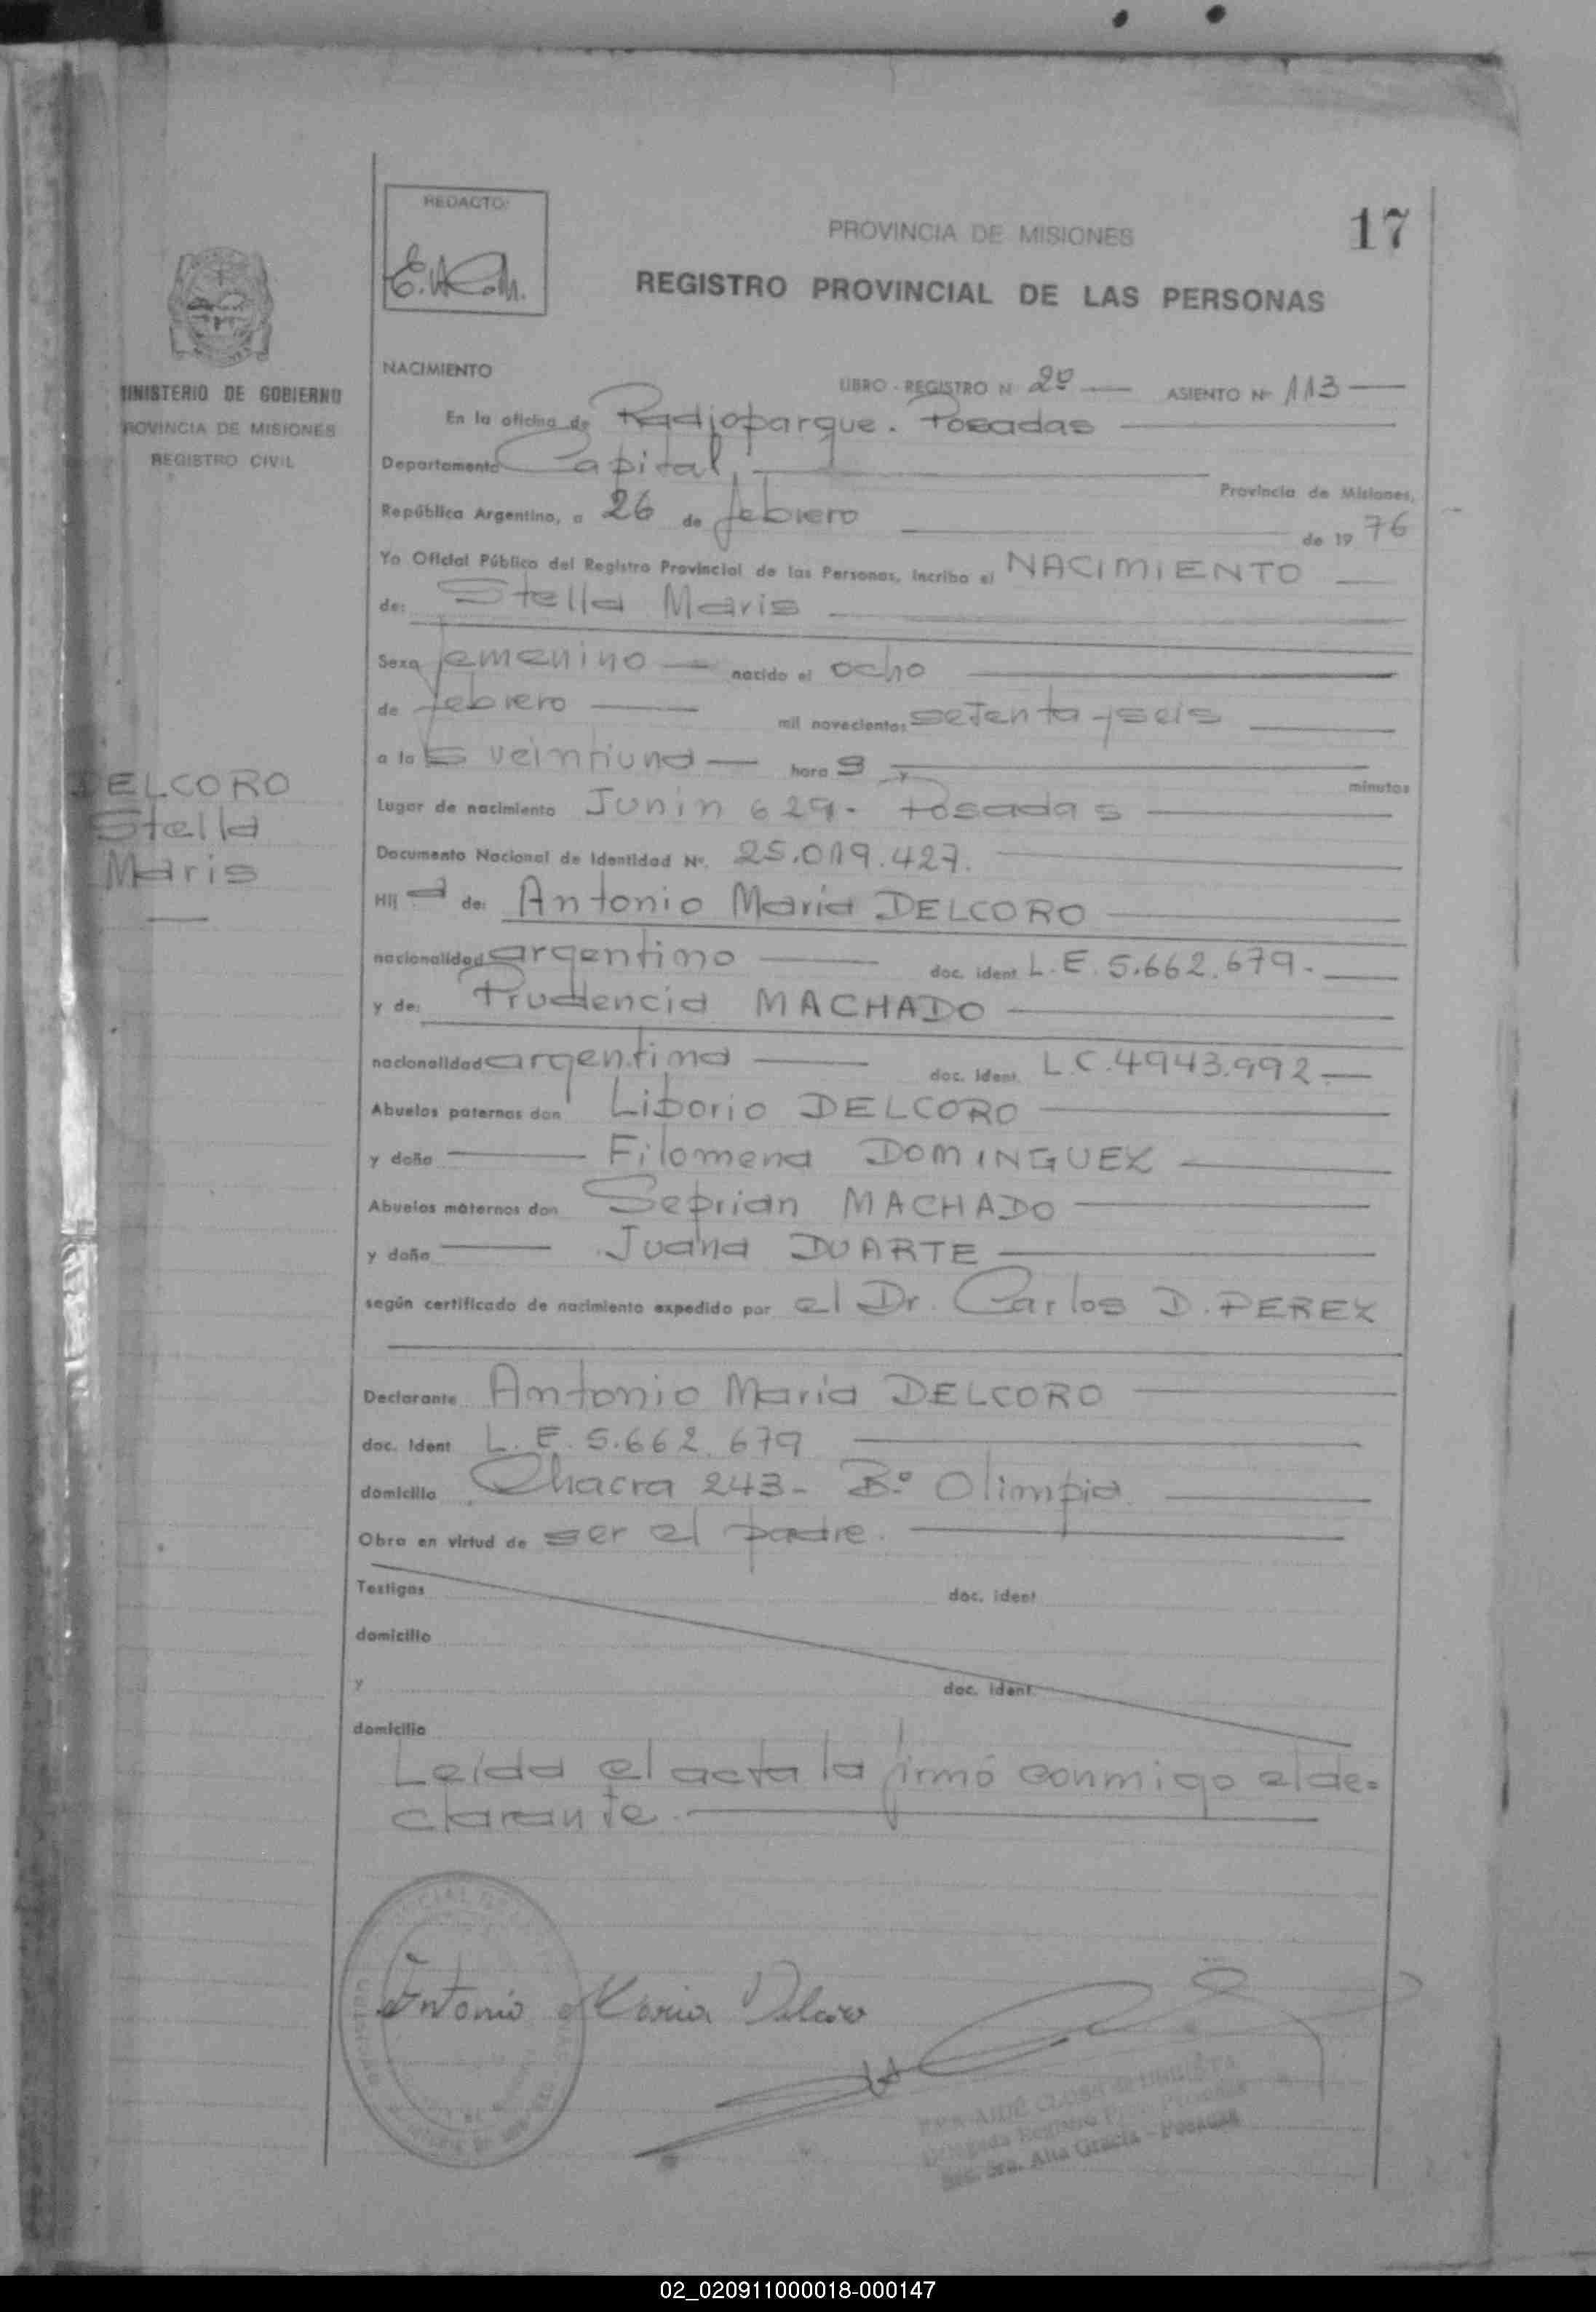 17
REDACTO:
PROVINCIA DE MISIONES
REGISTRO PROVINCIAL DE LAS PERSONAS
MINISTERIO DE GOBIERNO
PROVINCIA DE MISIONES
REGISTRO CIVIL
DELCORO
Stella
Maris
NACIMIENTO
LIBRO - REGISTRO N 2º ASIENTO Nº 113
En la oficina de Radioparque. Posadas
Departamento Capital,
Provincia de Misiones,
República Argentina, a 26 de febrero de 1976
Yo Oficial Público del Registro Provincial de las Personas, incribo el NACIMIENTO
de: Stella Maris
Sexo femenino nacido el ocho
de febrero mil novecientos setenta y seis
a las veintiuna horas y minutos
Lugar de nacimiento Junin 629. Posadas
Documento Nacional de Identidad Nº. 25.019.427.
Hij a de: Antonio Maria DELCORO
nacionalidad argentino doc. ident L.E. 5.662.679.
y de: Prudencia MACHADO
nacionalidad argentina doc. ident. L.C. 4943.992.
Abuelos paternos don Liborio DELCORO
y doña Filomena DOMINGUEZ
Abuelos maternos don Seprian MACHADO
y doña Juana DUARTE
según certificado de nacimiento expedido por el Dr. Carlos D. PEREZ
Declarante Antonio Maria DELCORO
doc. Ident L.E. 5.662.679
domicilio Chacra 243- Bº Olimpia
Obra en virtud de ser el padre.
Testigos doc. ident
domicilio
y doc. ident.
domicilio
Leída el acta la firmó conmigo el de=
clarante.
Antonio Maria Delcoro
Alta Gracia - Posadas
02_020911000018-000147